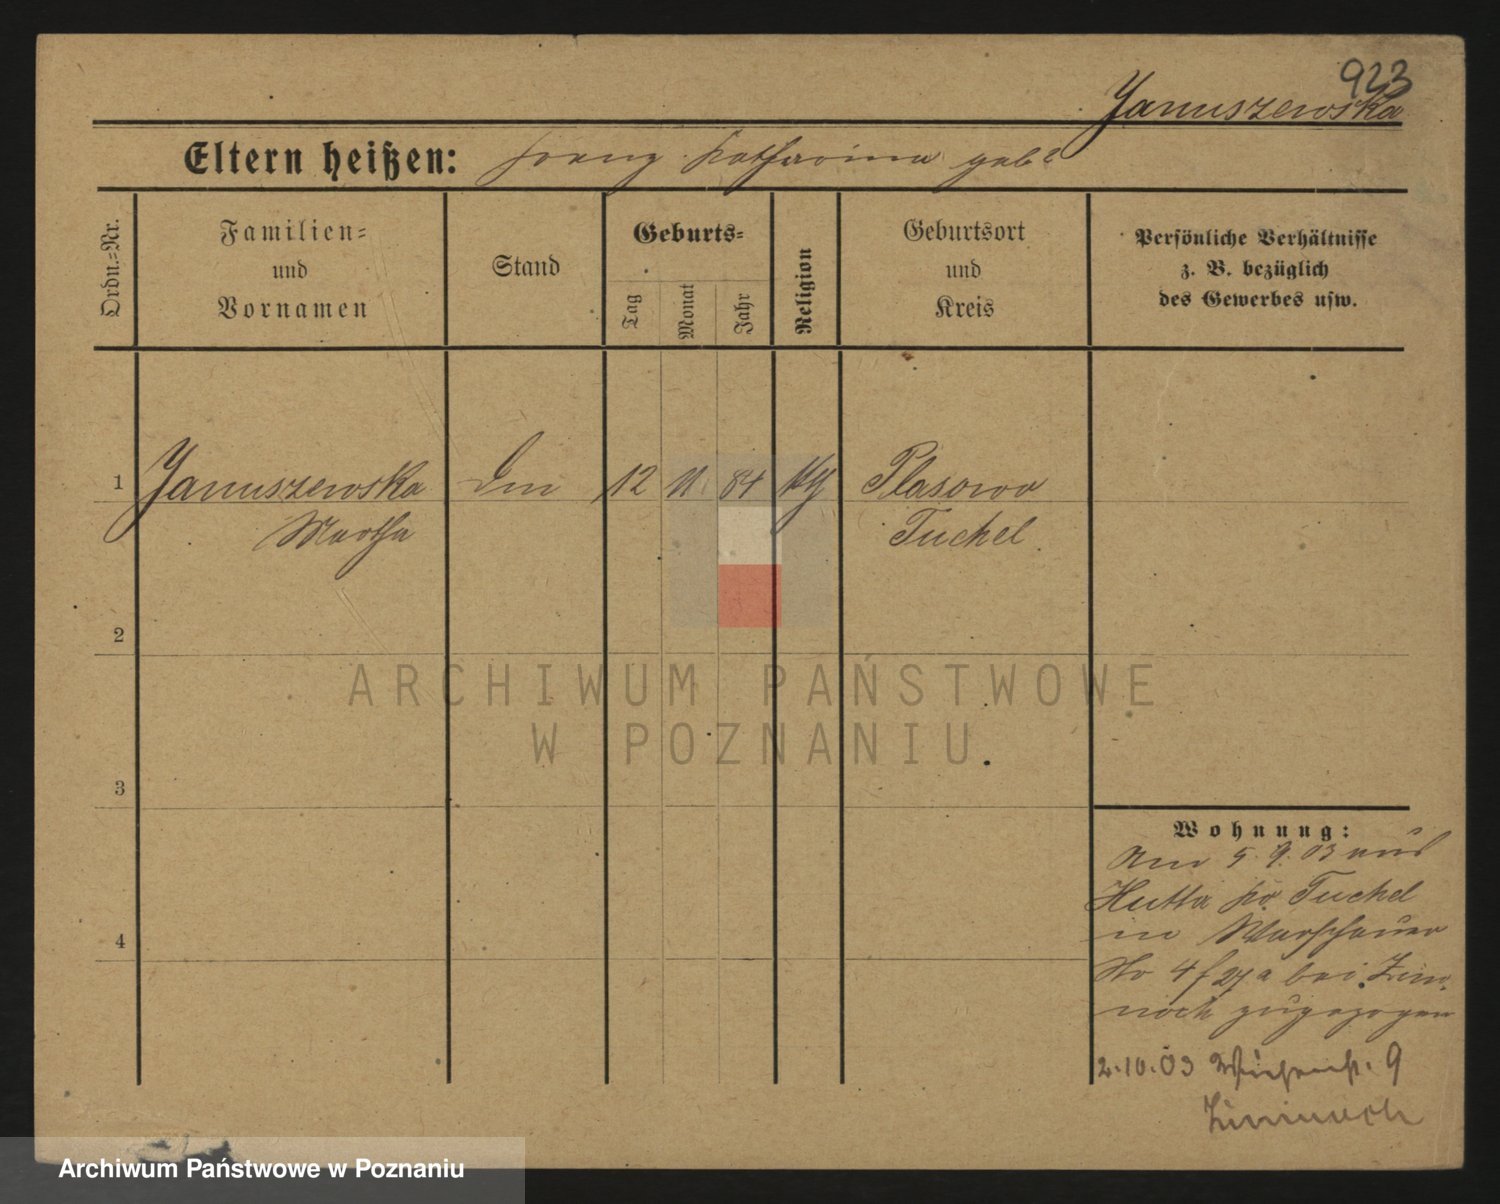 923
Januszewska
Eltern heißen: Franz Katharina geb?
Ordn.=Nr.
Familien=
und
Vornamen
Stand
Geburts=
Tag
Monat
Jahr
Religion
Geburtsort
und
Kreis
Persönliche Verhältnisse
z. B. bezüglich
des Gewerbes usw.
1 Januszewska 12 11 84 Plasowo
Martha Tuchel
2
3
4
ARCHIWUM PAŃSTWOWE
W POZNANIU
Wohnung:
Am 5.9.03 aus
Hutta Tuchel
in Warschauer
No 4 bei Zim
noch zugezogen
2.10.03 9
Zimnoch
Archiwum Państwowe w Poznaniu